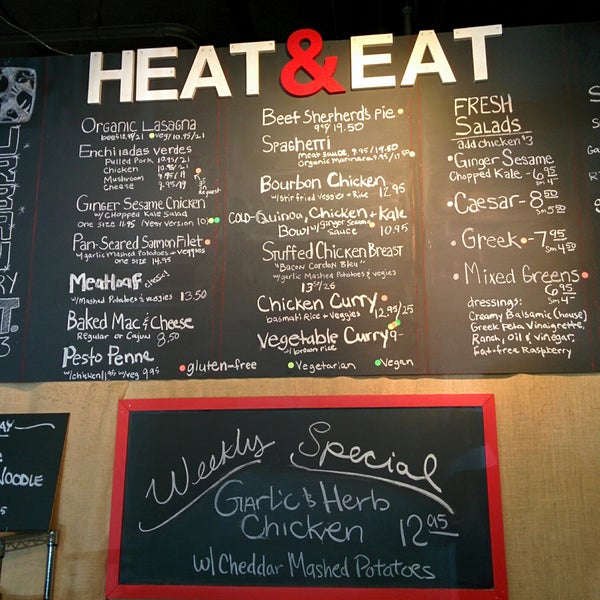 HEAT & EAT
Organic Lasagna
beef 10.95/21 veg 10.95/21
Enchiladas verdes
Pulled Pork 10.95/21
Chicken 10.95/21
Mushroom 9.95/19
Cheese 9.95/19
GF on Request
Ginger Sesame Chicken
w/ Chopped Kale Salad
one size 11.95 (Vegan Version 10)
Pan-Seared Salmon Filet
w/garlic Mashed Potatoes + veggies
one size 14.95
Meatloaf
w/Mashed Potatoes & veggies 13.50
Baked Mac & Cheese
Regular or Cajun 8.50
Pesto Penne
w/chicken 11.95 w/veg 9.95
gluten-free
Beef Shepherd's Pie
9.95/19.50
Spaghetti
meat sauce 9.95/19.50
organic marinara 9.95/17.50
Bourbon Chicken
w/Stir fried Veggies + Rice 12.95
COLD-Quinoa, Chicken + Kale
Bowl w/ Ginger Sesame
Sauce 10.95
Stuffed Chicken Breast
"Bacon Cordon Bleu"
w/garlic Mashed Potatoes & veggies
13.50/26
Chicken Curry
basmati Rice + Veggies 12.95/25
Vegetable Curry 9-
w/ brown rice
Vegetarian
Vegan
FRESH
Salads
add chicken $3
Ginger Sesame
Chopped Kale - 6.95
sm 4-
Caesar - 8.50
sm 5.50
Greek - 7.95
sm 4.50
Mixed Greens
6.95
sm 4-
dressings:
Creamy Balsamic (house)
Greek Feta Vinaigrette,
Ranch, Oil & vinegar,
Fat-free Raspberry
Weekly Special
Garlic & Herb
Chicken 12.95
w/ Cheddar Mashed Potatoes
NOODLE